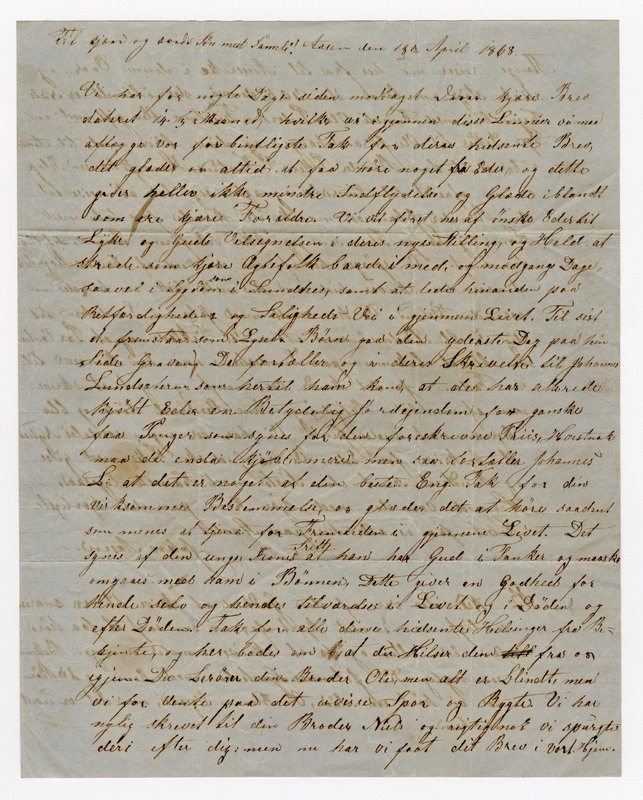 Til kjære og værds Søn med Familie! Aasen den 18de April 1868.
Vi har for nogle Dage siden modtaget Deres kjære Brev
dateret 4 5 Maaned, hvilke vi igjennem disse Linnier vil med
aflægge vor forbindtligste Tak for deres hiedsente Brev,
det glæder os altid at faa høre noget fra Eder og dette
giver heller ikke mindre Indflydelse og Glæde iblandt
som ere kjære Forældre. Vi vil først heraf ønske Eder til
Lykke og Guds Velsignelsen i deres nye Stilling, og Held at
skride som kjære Ægtefolk baade i med, og modgangs Dage,
saavel i Sygdom som i Sundhed, samt at lede hinanden paa
Retfærdigheds og Saligheds Vei igjennem Livet. Til sist
at fremstaa som Lysets Børn paa den yderste Dag paa hin
Side Graven. De fortæller og i deres Skrivelse til Johannes
Lundsæteren som hertil ham kom, at de har allerede
kjøbt Eder en Betydelig Jordeiendom for ganske
faa Penger som synes for den foreskrevne Priis,
maa de enda kjøbe mere men saa fortæller Johannes
L: at det er noget af den beste Eng Tak for din
virksomme Bestemmelse, os glæder det at høre saadant
som menes at tjene for Fremtiden i gjennem Livet. Det
synes af din unge Kones Fritt at han har Gud i Tanker og maaske
omgaaes med ham i Bønnen, Dette giver en Godhed for
hende selv og hendes tilværelse i Livet og i Døden og
efter Døden. Tak for alle dine hiedsente Helsinger fra Be-
kjente, og her bedes om at du Hilser dem fra os
igjen. Du berører din Broder Ole, men alt er blindt, men
vi før vente paa det uvisse Spor og Rygte. Vi har
nylig skrevet til din Broder Niels og rigtignok vi spurgte
deri efter dig; men nu har vi faat dit Brev i vort Hjem.